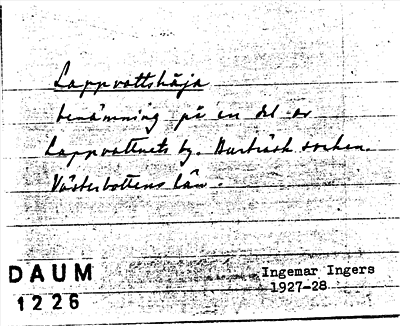 Lappvattshöja
benämning på en del av
Lappvattnets by. Burträsk socken.
Västerbottens län.
DAUM
1226
Ingemar Ingers
1927-28